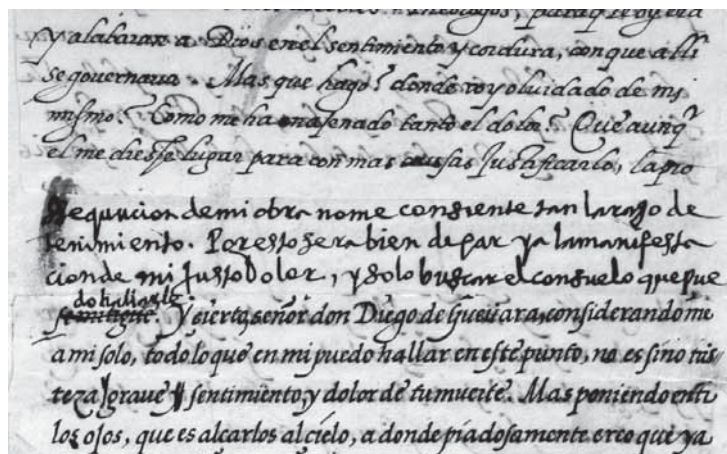 paraq̃
y alabaran a Dios en el sentimiento y cordura, con que alli
se governava. Mas que hago? donde voy olvidado de mi
mismo? Como me ha enajenado tanto el dolor? Que aunq̃
el me diesse lugar para con mas causas justificarlo, la pro
sequucion de mi obra no me consiente tan largo de
tenimiento. Por esto sera bien dexar ya la manifesta
cion de mi justo Dolor, y solo buscar el consuelo que pue
do hallarle
Y cierto, señor don Diego de Guevara, considerando me
a mi solo, todo lo que en mi puedo hallar en este punto, no es sino tris
teza grave sentimiento, y dolor de tu muerte. Mas poniendo en ti
los ojos, que es alcarlos al cielo, a donde piadosamente creo que ya